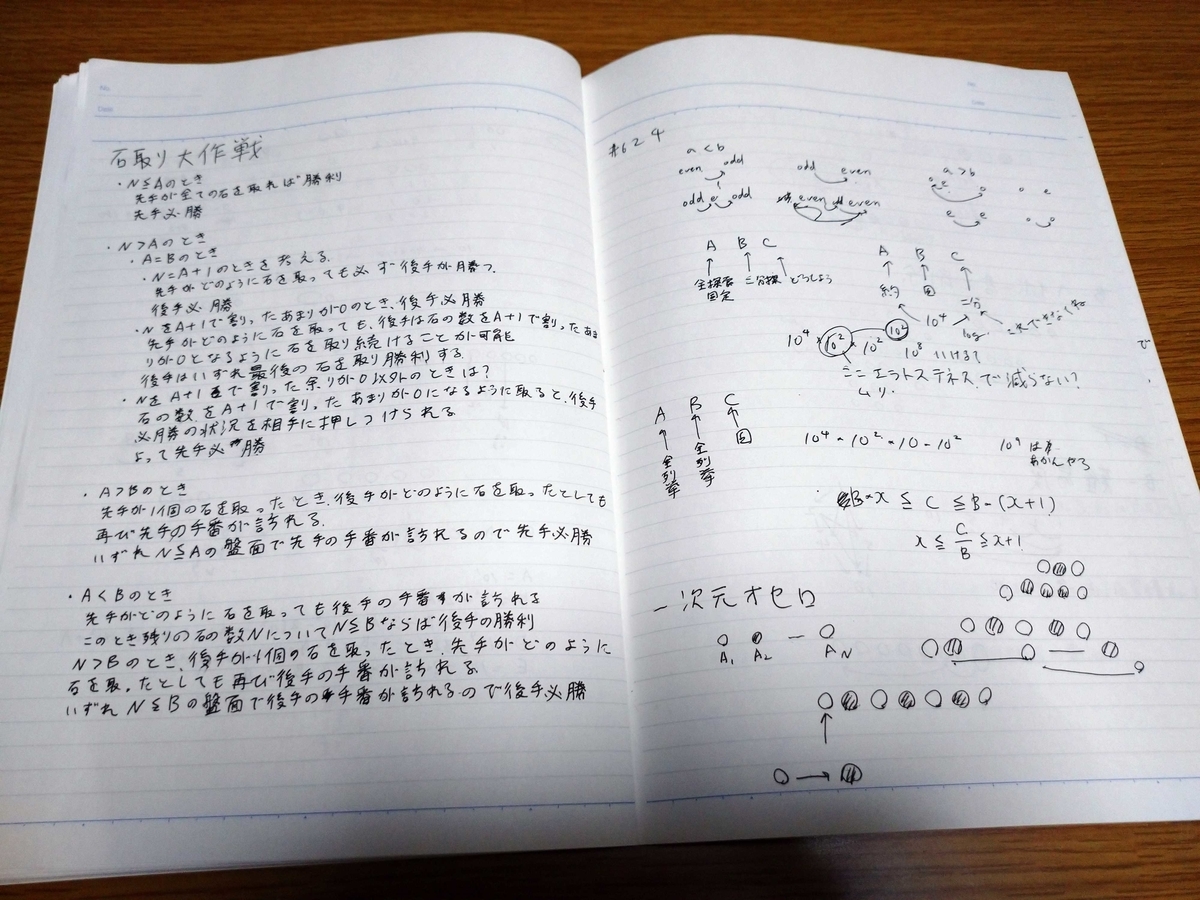 No.
Date
石取り大作戦
・N≦Aのとき
先手が全ての石を取れば勝利
先手必勝
・N>Aのとき
・A=Bのとき
・N=A+1のときを考える.
先手がどのように石を取っても必ず後手が勝つ.
後手必勝
・NをA+1で割ったあまりが0のとき、後手必勝
先手がどのように石を取っても、後手は石の数をA+1で割ったあま
りが0となるように石を取り続けることが可能
後手はいずれ最後の石を取り勝利する.
・NをA+1で割った余りが0以外のときは?
石の数をA+1で割ったあまりが0になるように取ると、後手
必勝の状況を相手に押しつけられる
よって先手必勝
・A>Bのとき
先手が1個の石を取ったとき、後手がどのように石を取ったとしても
再び先手の手番が訪れる.
いずれN≦Aの盤面で先手の手番が訪れるので先手必勝
・A<Bのとき
先手がどのように石を取っても後手の手番が訪れる
このとき残りの石の数NについてN≦Bならば後手の勝利
N>Bのとき、後手が1個の石を取ったとき、先手がどのように
石を取ったとしても再び後手の手番が訪れる
いずれN≦Bの盤面で後手の手番が訪れるので後手必勝
No.
Date
#624
a<b
a>b
even odd
odd even
e o
o e
odd e odd
even even
e e
o o
A B C
全探索 二分探 どうしよう
固定
A B C
約 固 二分
10⁴ log
10⁴ × 10² × 10² 10² 10⁸ いける?
ミニエラトステネスで減らない?
ムリ.
A B C
全列挙 全列挙 固
10⁴ × 10² × 10 - 10² 10⁹ は
あかんやろ
B×x ≦ C ≦ B-(x+1)
x ≦ C/B ≦ x+1
一次元オセロ
A₁ A₂ — A_N